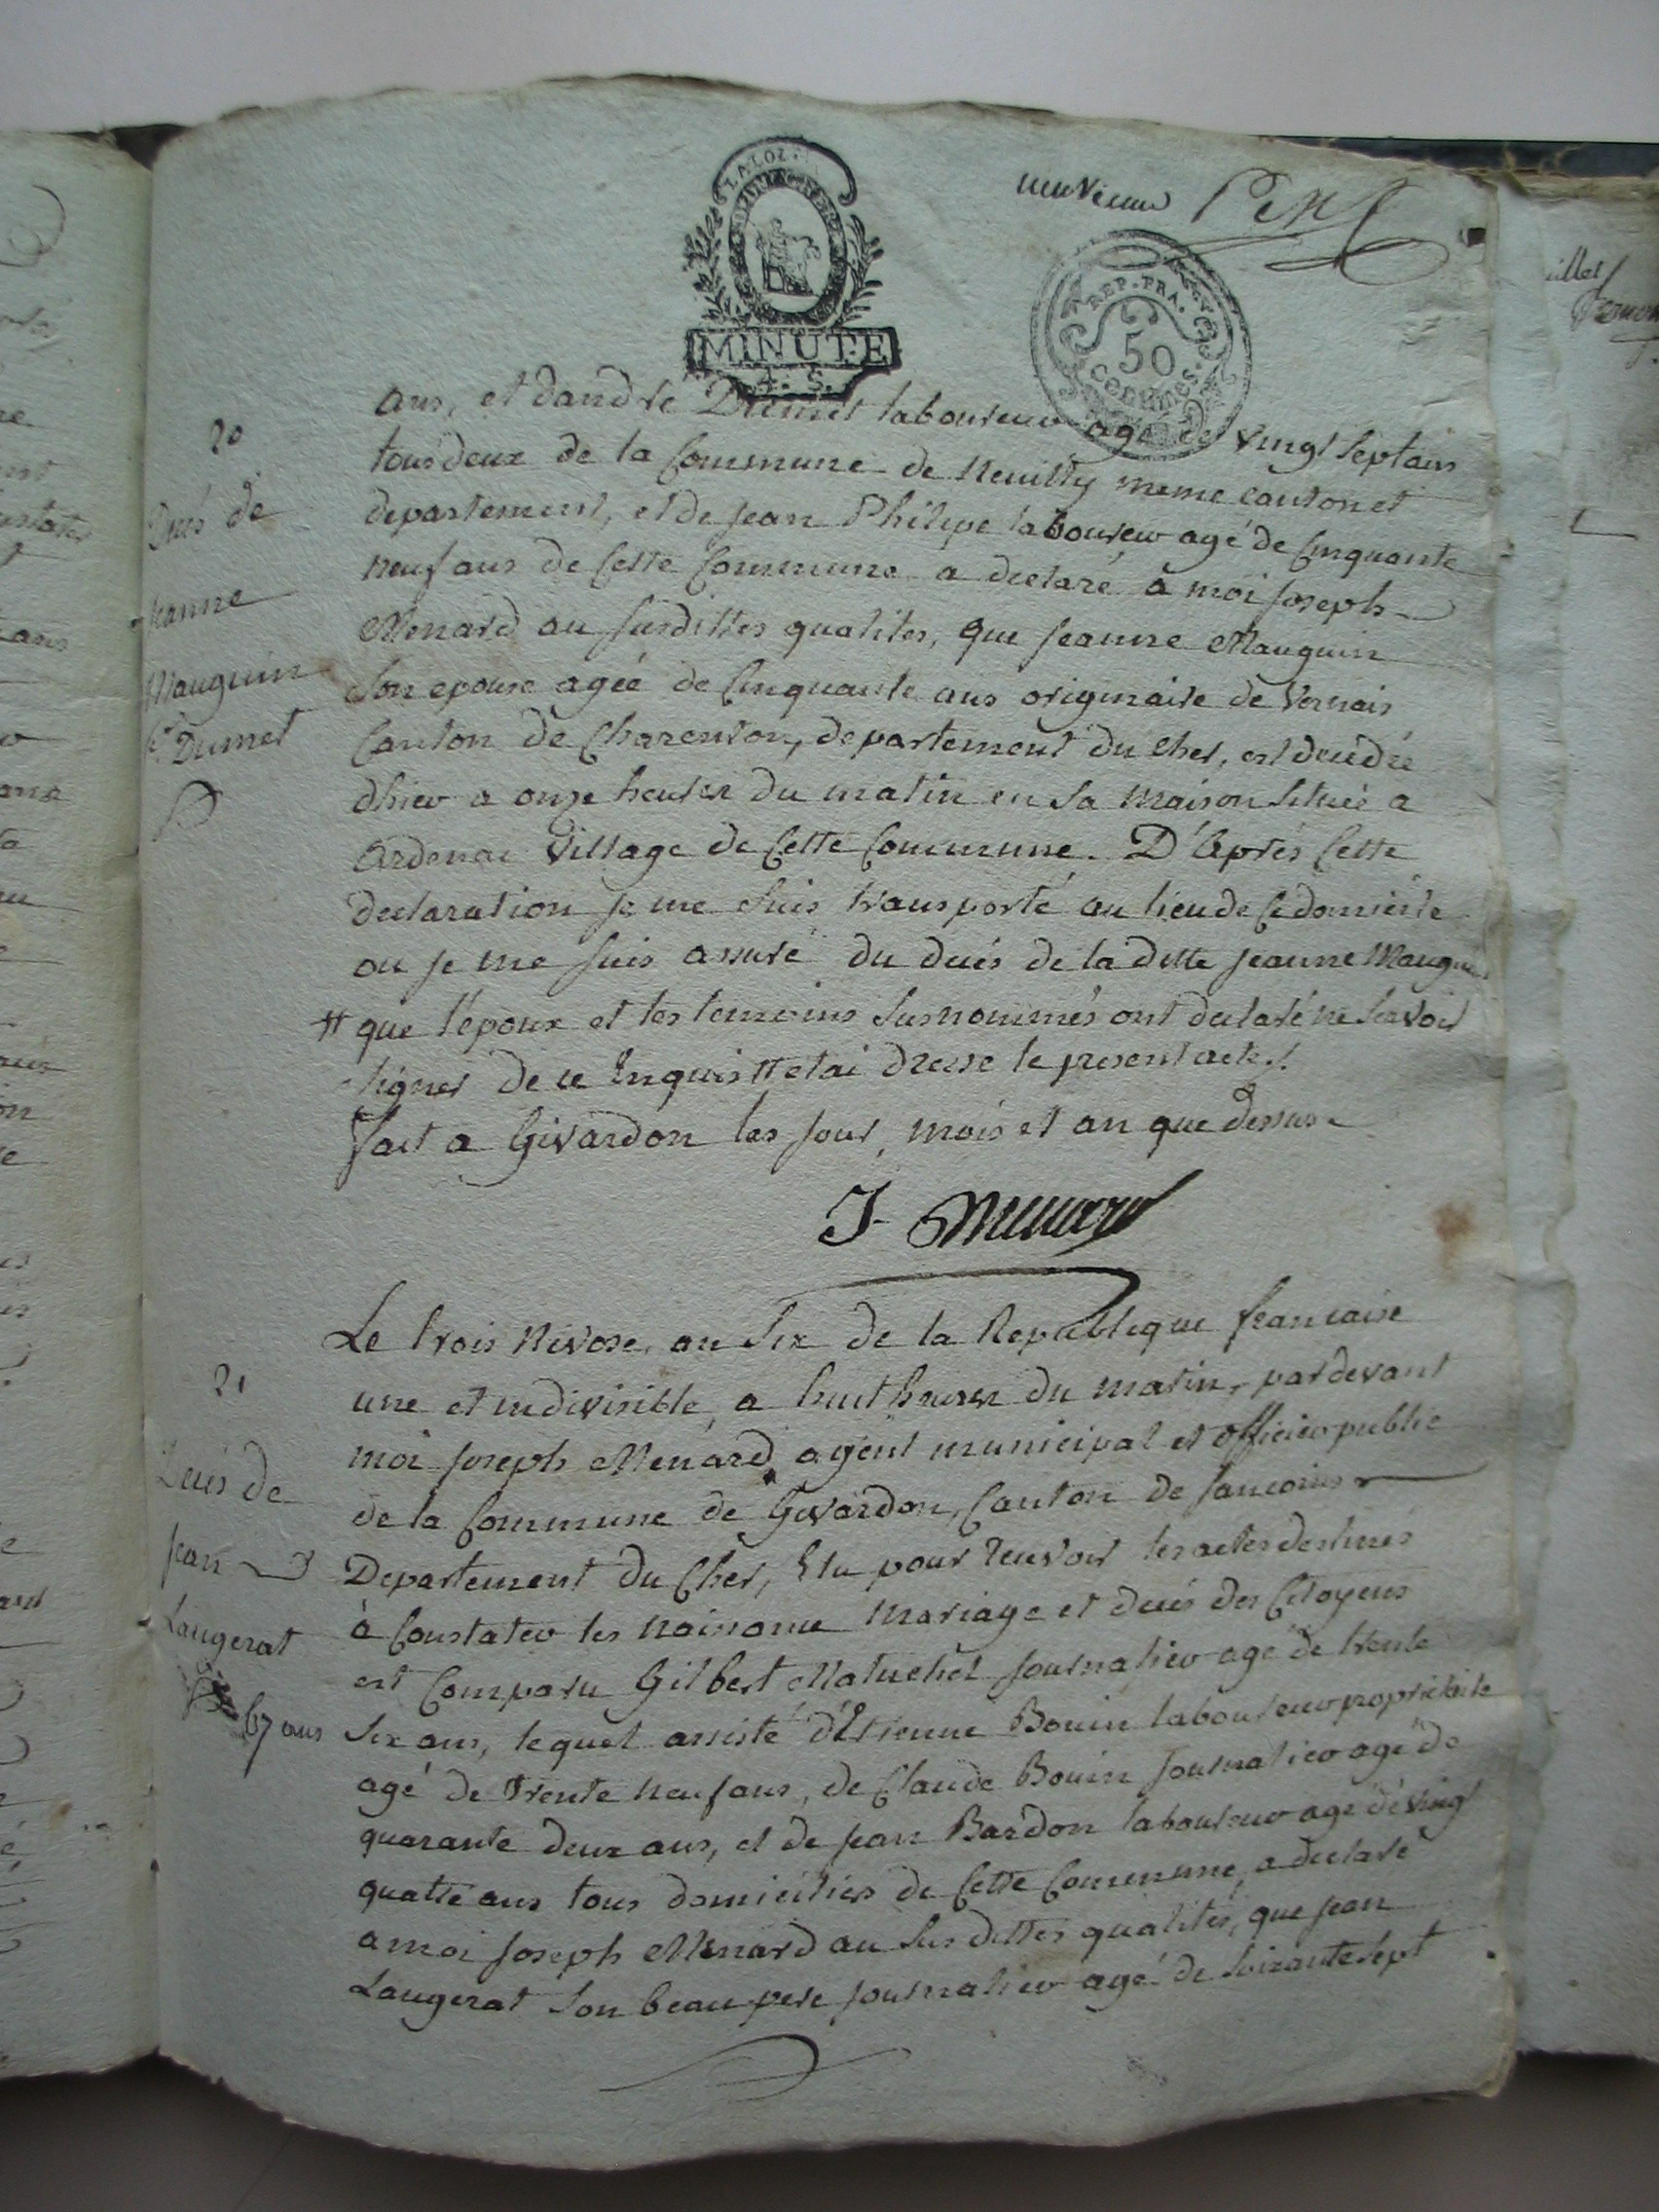 neuvieme
LA LOI
MINUTE
REP. FRA.
50
CENTIMES.
ans, et dandré Dumet laboureur agé de vingt sept ans
tous deux de la Commune de Neuilly meme canton et
departement, et de jean Philipe laboureur agé de Cinquante
neuf ans de Cette Commune a declaré a moi joseph
Menard au susdittes qualités, que jeanne Mauguin
Son epouse agée de Cinquante ans originaire de Vernais
Canton de Charenton, departement du Cher, est décédée
dhier a onze heures du matin en sa maison Située a
Ardenai Village de Cette Commune. D'Après Cette
declaration je me suis transporté au lieu de Ce domicile
ou je me suis assuré du decés de la ditte jeanne Mauguin
# que l'epoux et les temoins susnommés ont declaré ne savoir
signer de ce Enquis # et ai dressé le present acte.
fait a Givardon les jour, mois et an que dessus
J. Menard
20
Decés de
jeanne
Mauguin
fe Dumet
Le trois Nivose, an Six de la Republique francaise
une et indivisible, a huit heures du matin, pardevant
moi joseph Menard agent municipal et officier public
de la Commune de Givardon, Canton de Sancoins
Departement du Cher, Elu pour recevoir les actes destinés
à Constater les naissance mariage et decés des Citoyens
est Comparu Gilbert Matuchet journalier agé de trente
Six ans, lequel assisté d'Etienne Bouin laboureur propriétaire
agé de trente neuf ans, de Claude Bouin journalier agé de
quarante deux ans, et de jean Bardon laboureur agé de vingt
quatre ans tous domiciliés de Cette Commune, a declaré
a moi joseph Menard au susdittes qualités, que jean
Laugerat son beau pere journalier agé de Soixante Sept
21
Decés de
jean
Laugerat
67 ans